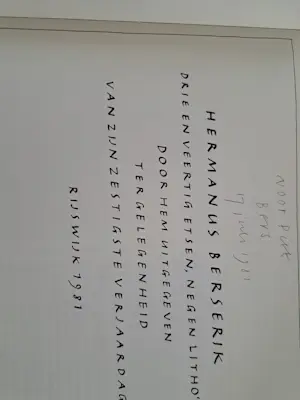 HERMANUS BERSERIK
DRIE EN VEERTIG ETSEN, NEGEN LITHO'
DOOR HEM UITGEGEVEN
TER GELEGENHEID
VAN ZIJN ZESTIGSTE VERJAARDAG
RIJSWIJK 1981